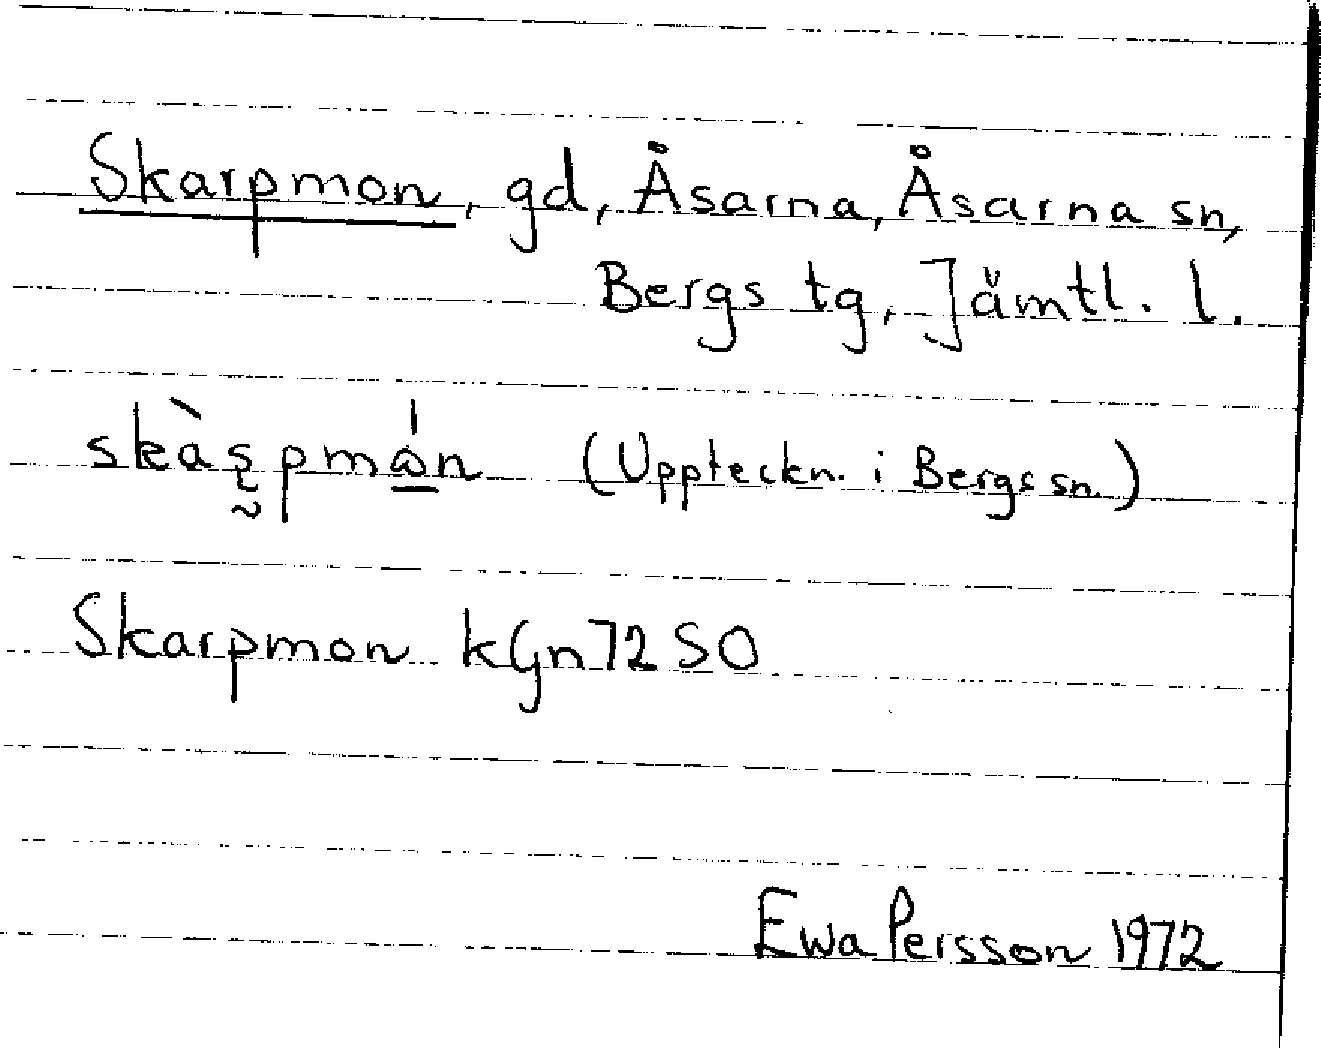 Skarpmon, gd, Åsarna, Åsarna sn,
Bergs tg, Jämtl. l.
(Uppteckn. i Bergs sn.)
Skarpmon kGn72 SO
Ewa Persson 1972